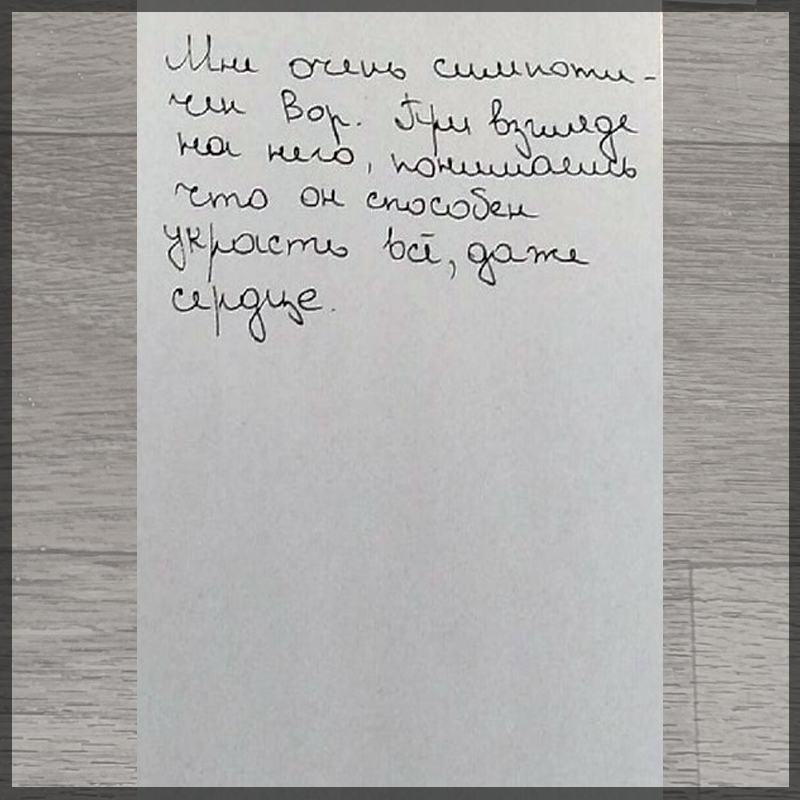 Мне очень симпати-
чен Вор. При взгляде
на него, понимаешь
что он способен
украсть всё, даже
сердце.